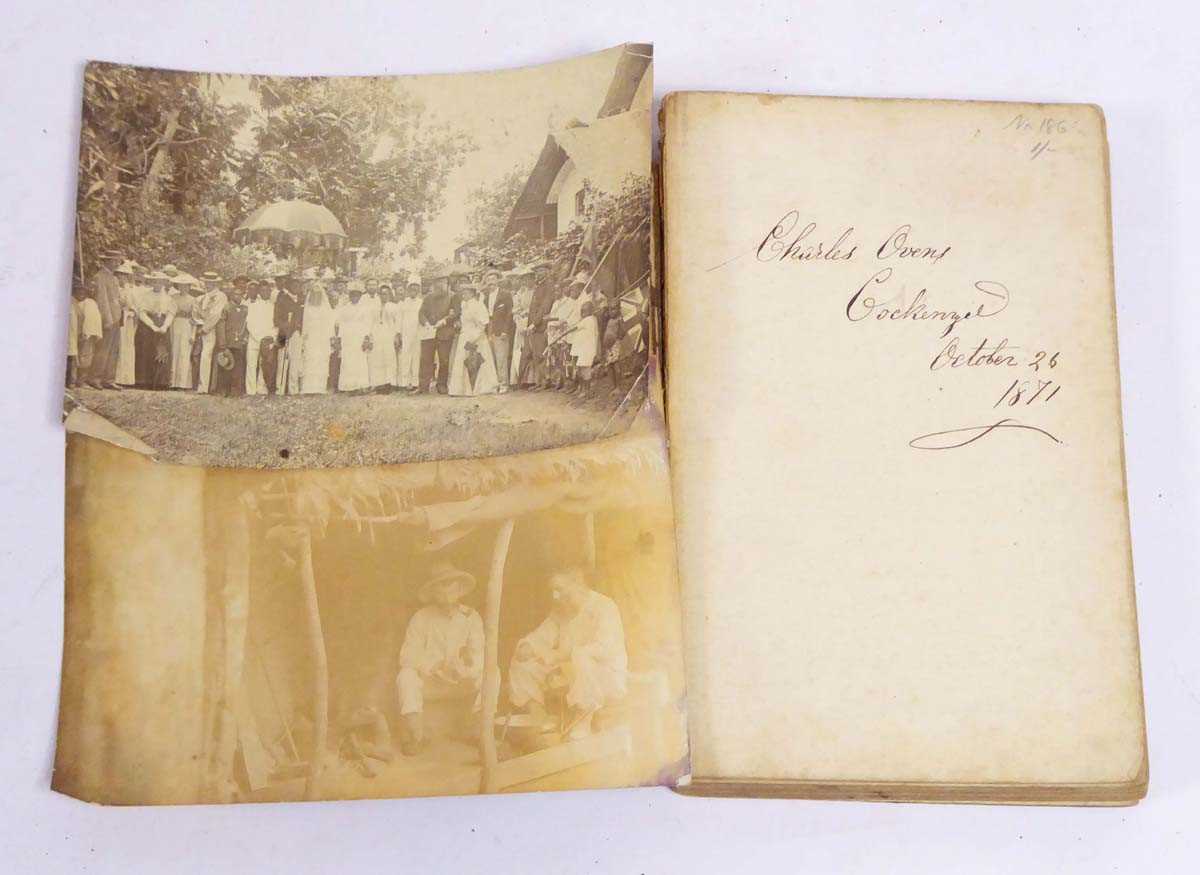 No 186
1/-
Charles Ovens
Cockenzie
October 26
1871